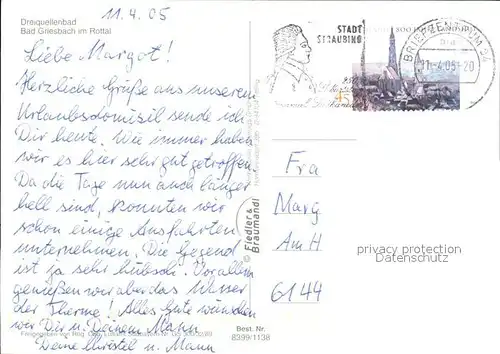 11.4.05
Dreiquellenbad
Bad Griesbach im Rottal
Liebe Margot!
Herzliche Grüße aus unserem
Urlaubsdomizil sende ich
Dir heute. Wie immer haben
wir es hier sehr gut getroffen.
Da die Tage nun auch länger
hell sind, konnten wir
schon einige Ausfahrten
unternehmen. Die Gegend
ist ja sehr hübsch. Vor allem
genießen wir aber das Wasser
der Therme! Alles Gute wünschen
wir Dir u. Deinem Mann
Deine Christel u. Mann
© Fiedler & Braumandl
Best. Nr.
8399/1138
STADT
STRAUBING
BRIEFZENTRUM 94
11.-4.05-20
45
Fra
Marg
Am H
6144
privacy protection
Datenschutz